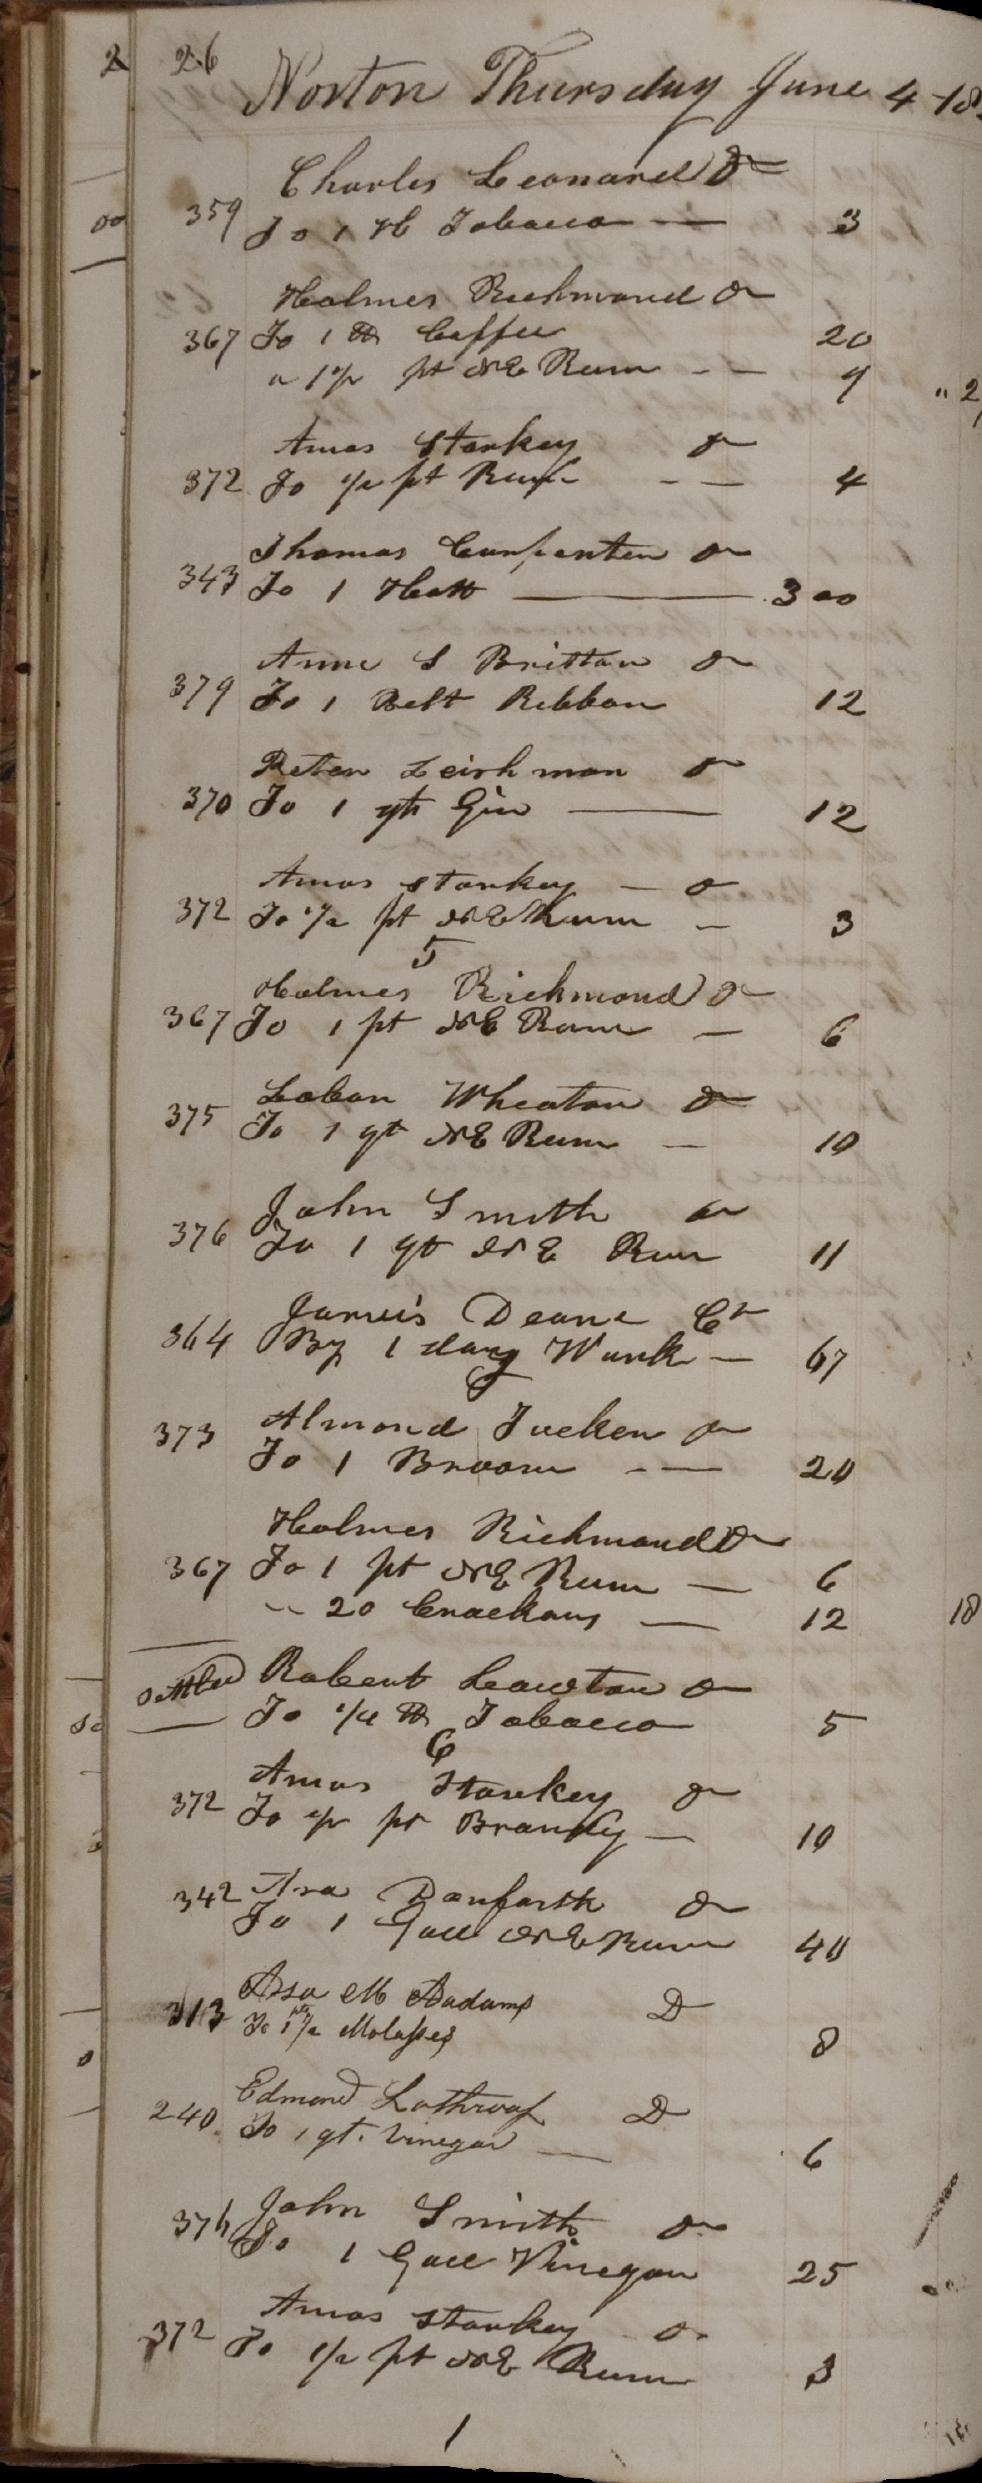 26
Norton Thursday June 4 18
Charles Leonard Dr
359 To 1 lb Tobacco — 3
Holmes Richmond Dr
367 To 1 lb Coffee 20
" 1 1/2 pt NE Rum - — 9 " 2
Amos Starkey Dr
372 To 1/2 pt Rum - — 4
Thomas Carpenter Dr
343 To 1 Hatt — 3 00
Anne S Brittan Dr
379 To 1 Belt Ribbon 12
Peter Leishman Dr
370 To 1 qt Gin — 12
Amos Starkey — Dr
372 To 1/2 pt NE Rum — 3
5
Holmes Richmond Dr
367 To 1 pt NE Rum — 6
Laban Wheaton Dr
375 To 1 qt NE Rum — 10
John Smith Dr
376 To 1 qt NE Rum 11
Jarvis Deane Cr
364 By 1 days Work — 67
Almond Tucker Dr
373 To 1 Broom - — 20
Holmes Richmond Dr
367 To 1 pt NE Rum — 6
" 20 Crackars — 12 18
Settled Robert Lawton Dr
To 1/4 lb Tobacco 5
6
Amos Starkey Dr
372 To 1/2 pt Brandy — 10
Asa Danforth Dr
342 To 1 Gall NE Rum 40
Asa M Aadams D
313 To 1 1/2 pt Molasses 8
Edmond Lothroop D
240 To 1 qt. Vinegar — 6
John Smith Dr
376 To 1 Gall Vinegar 25
Amos Starkey Dr
372 To 1/2 pt NE Rum 3
1